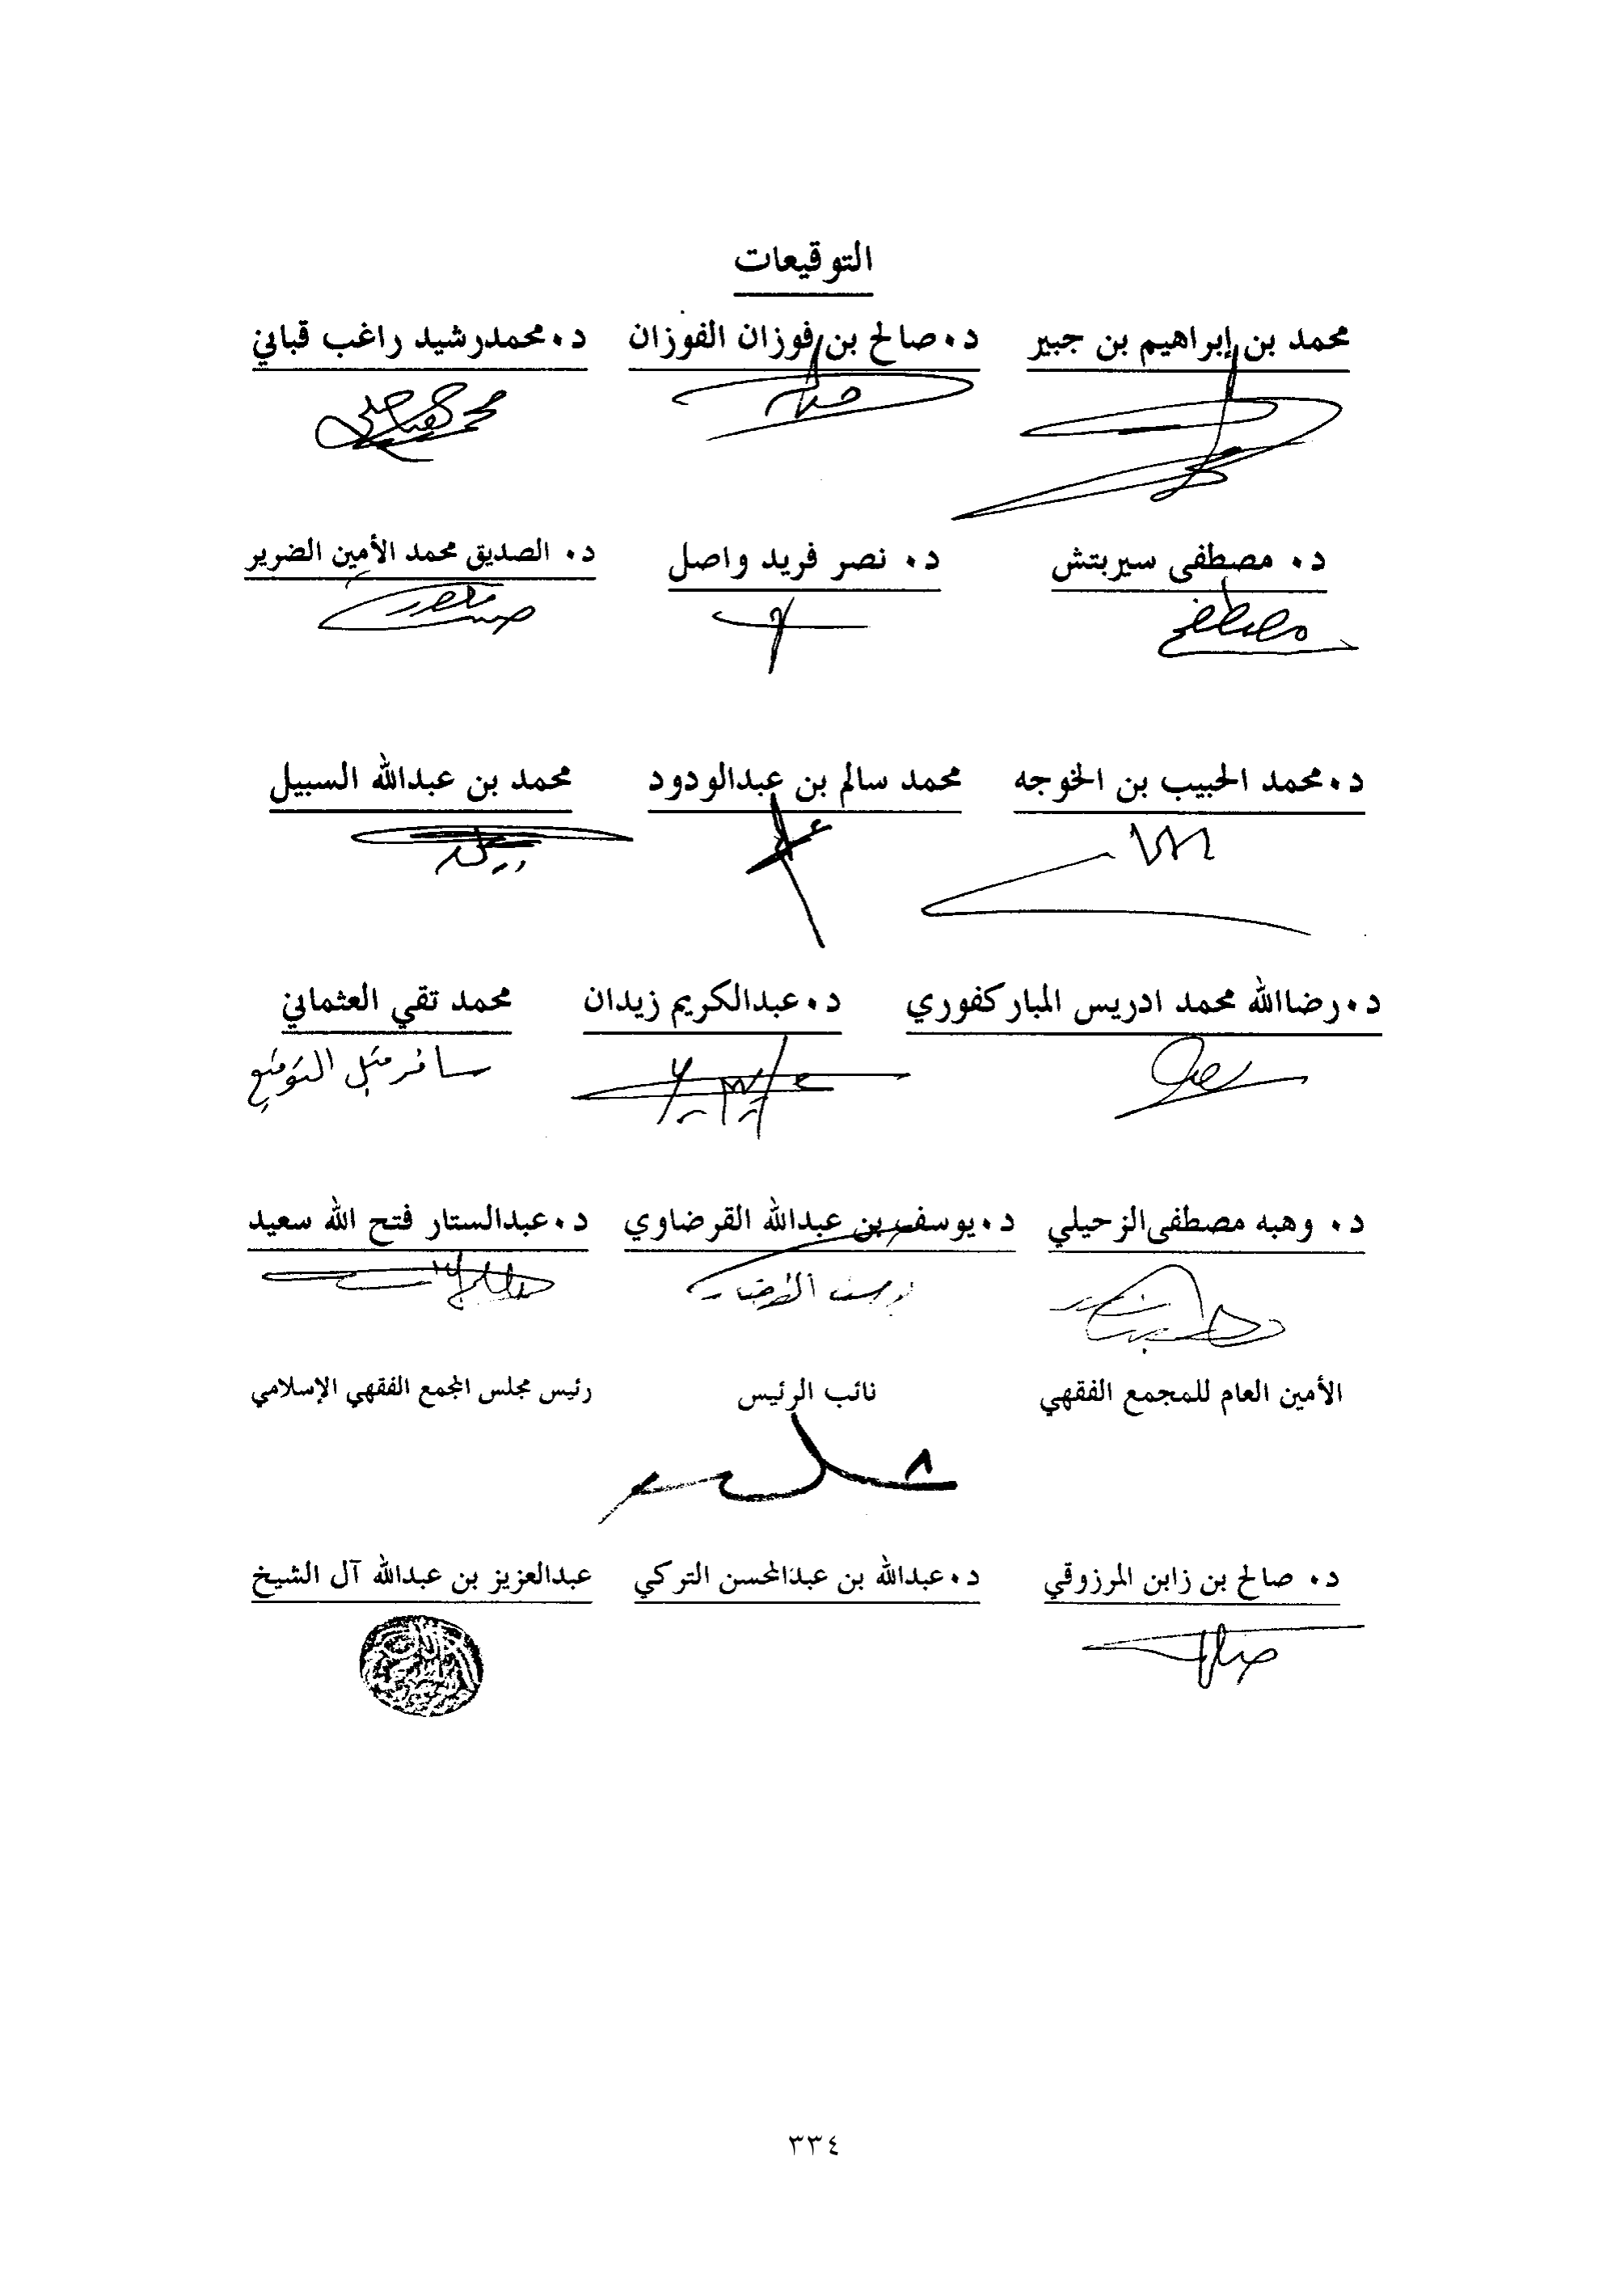 التوقيعات
محمد بن إبراهيم بن جبير د. صالح بن فوزان الفوزان د. محمد رشيد راغب قباني
د. مصطفى سيريتش د. نصر فريد واصل د. الصديق محمد الأمين الضرير
د. محمد الحبيب بن الخوجه محمد سالم بن عبدالودود محمد بن عبدالله السبيل
د. رضاالله محمد ادريس المباركفوري د. عبدالكريم زيدان محمد تقي العثماني
سافر قبل التوقيع
د. وهبه مصطفى الزحيلي د. يوسف بن عبدالله القرضاوي د. عبدالستار فتح الله سعيد
الأمين العام للمجمع الفقهي نائب الرئيس رئيس مجلس المجمع الفقهي الإسلامي
د. صالح بن زابن المرزوقي د. عبدالله بن عبدالمحسن التركي عبدالعزيز بن عبدالله آل الشيخ
٣٣٤